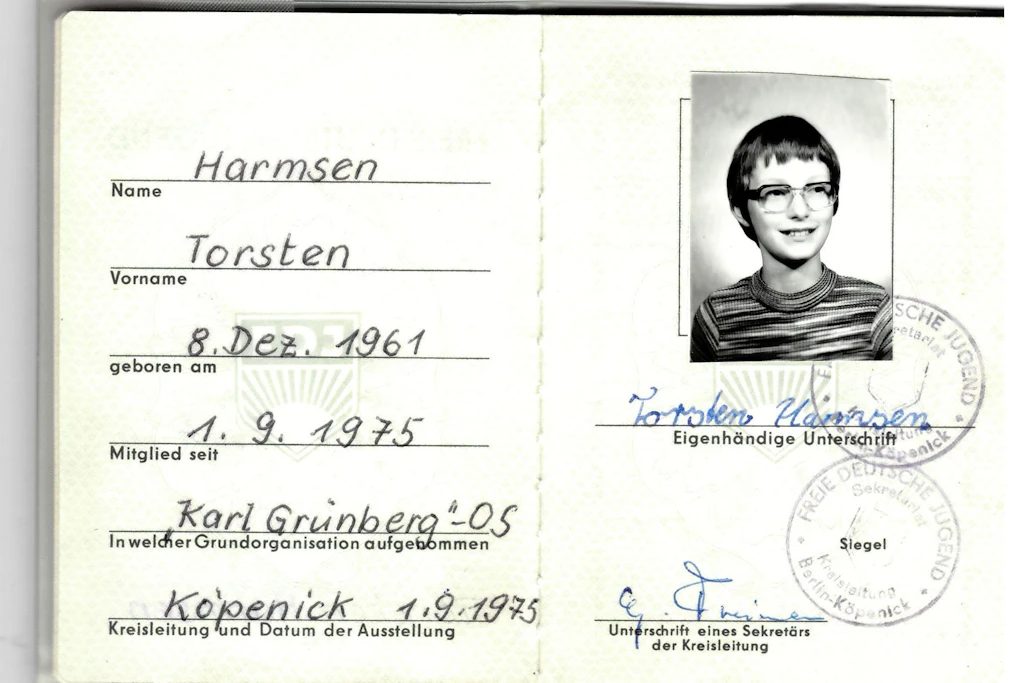 Harmsen
Name
Torsten
Vorname
8. Dez. 1961
geboren am
1. 9. 1975
Mitglied seit
„Karl Grünberg"-OS
In welcher Grundorganisation aufgenommen
Köpenick 1.9.1975
Kreisleitung und Datum der Ausstellung
FDJ
Torsten Harmsen
Eigenhändige Unterschrift
FREIE DEUTSCHE JUGEND
Sekretariat
Siegel
Kreisleitung
Berlin-Köpenick
Unterschrift eines Sekretärs
der Kreisleitung